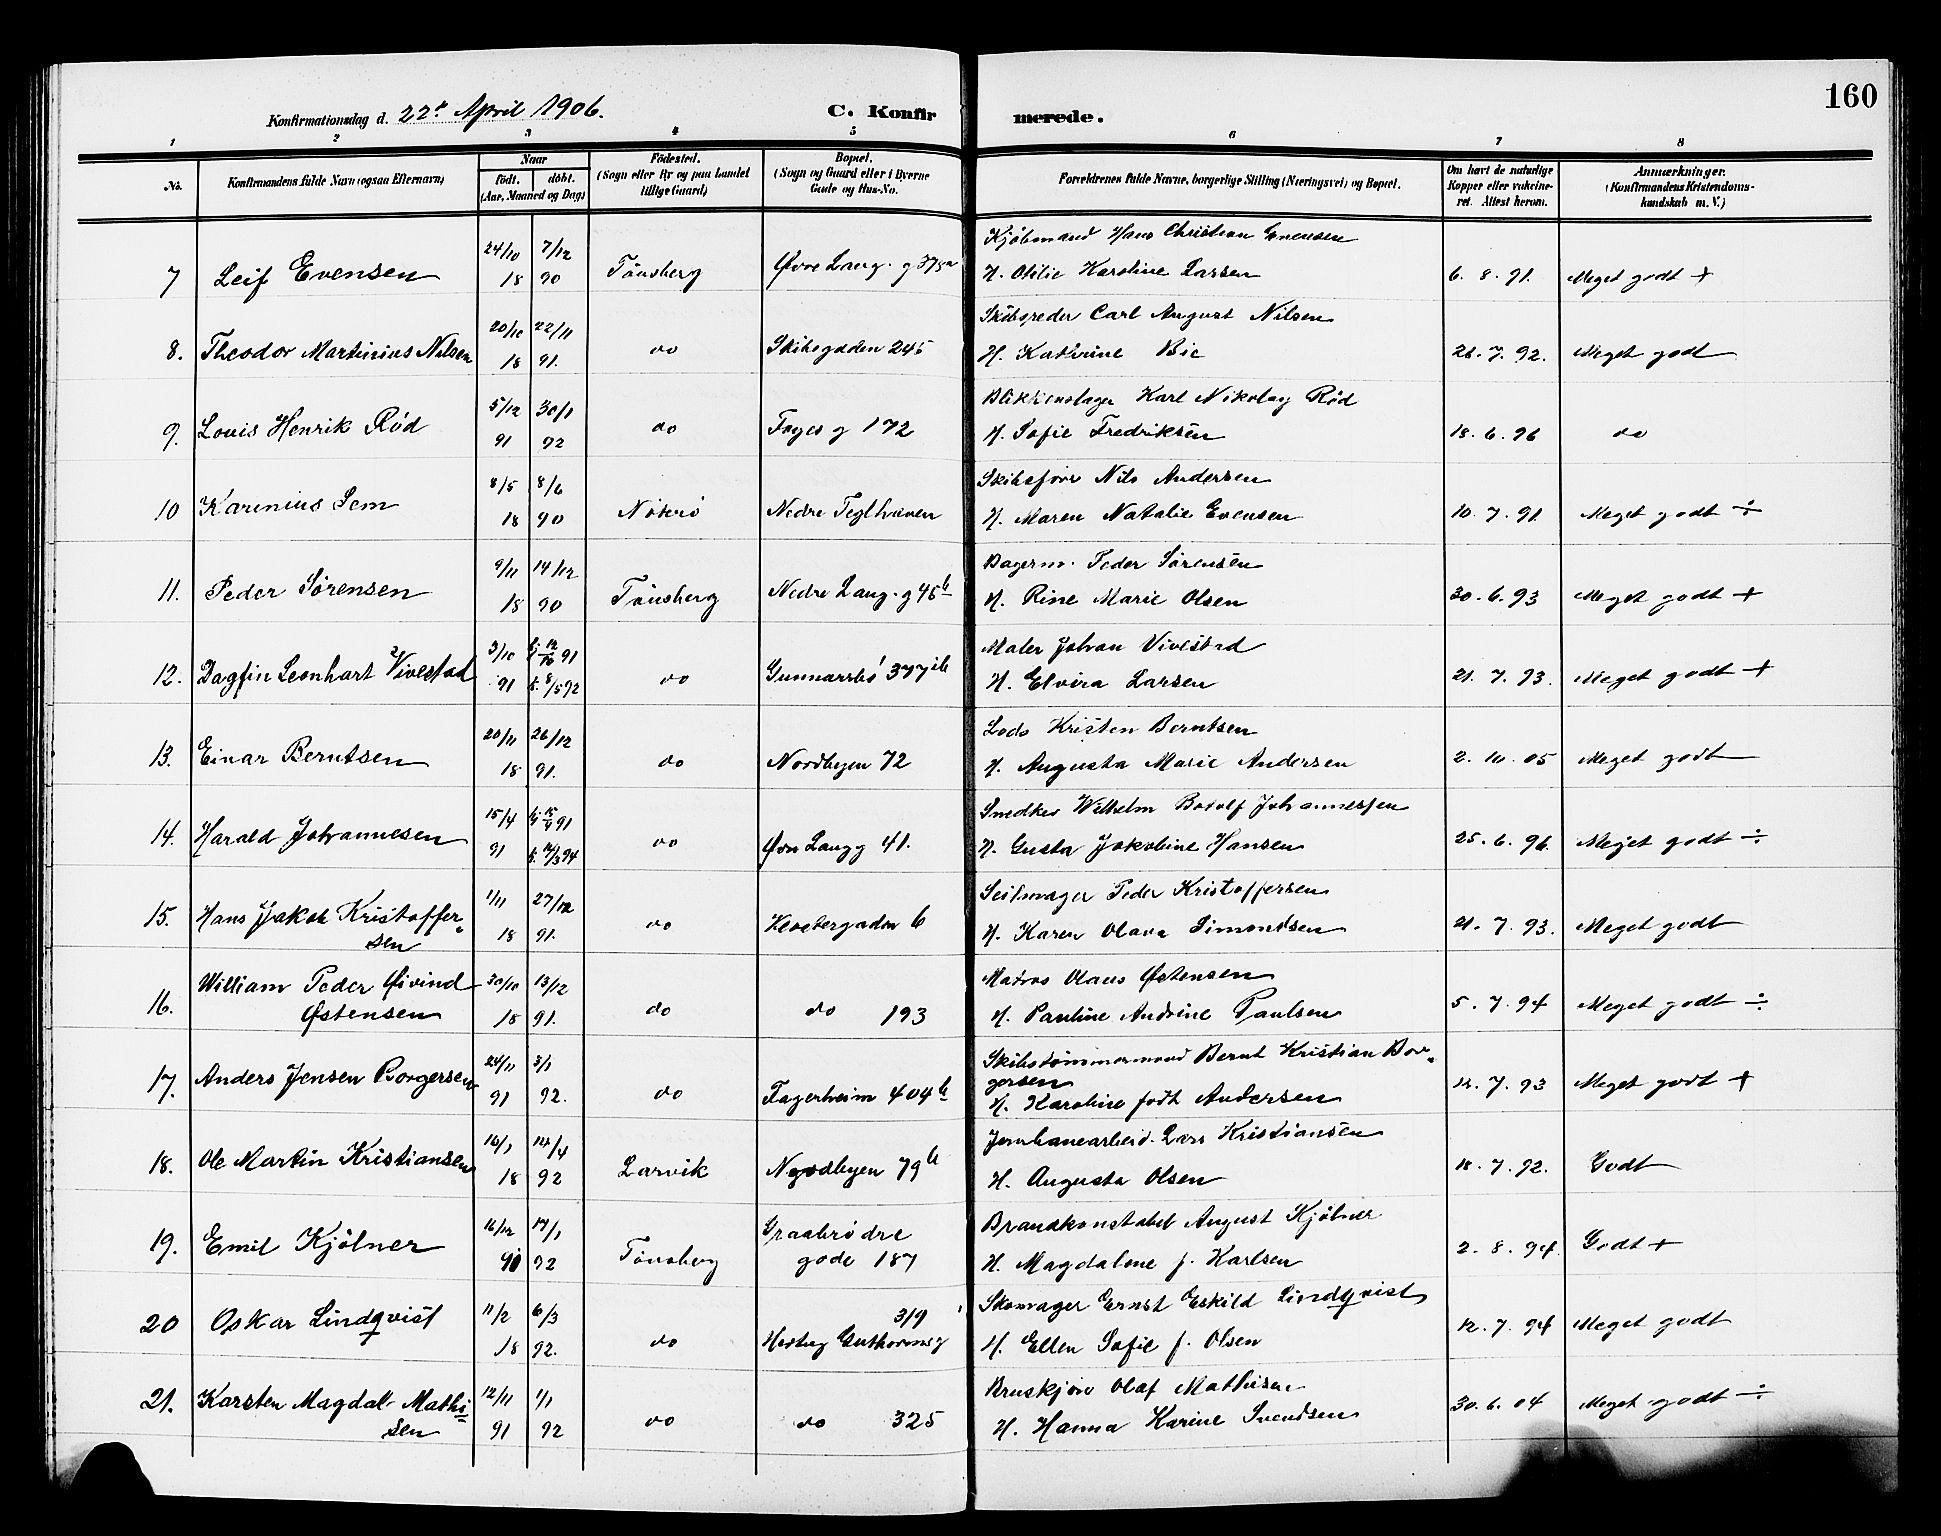 160
Konfirmationsdag d. 22de April 1906. C. Konfirmerede.
1 2 3 4 5 6 7 8
No. Konfirmandens fulde Navn (ogsaa Efternavn) Naar født. døbt. (Aar, Maaned og Dag) Fødested. (Sogn eller By og paa Landet tillige Gaard) Bopæl. (Sogn og Gaard eller i Byerne Gade og Hus-No. Forældrenes fulde Navne, borgerlige Stilling (Næringsvei) og Bopæl. Om havt de naturlige Kopper eller vakcineret. Attest herom. Anmærkninger. (Konfirmandens Kristendomskundskab m. V.)
24/10 7/12 Kjøbmand Hans Christian Evensen
7 Leif Evensen 18 90 Tønsberg Øvre Lang. g H. Otilie Karoline Larsen 6. 8. 91. Meget godt +
20/10 22/11 Skibsreder Carl August Nilsen
8. Theodor Martinius Nilsen 18 91. do Skibsgaden 245 H. Kathrine Bie 7. 92. Meget godt
5/12 30/1 Blikkenslager Karl Nikolay Rød
9. Louis Henrik Rød 91 92 do Fayes g 172 H. Sofie Fredriksen 18. 6. 96 do
8/5 8/6 Skibsfører Nils Andersen
10 Karenius Sem 18 90 Nøterø Nedre Teglhaven H. Maren Natalie Evensen 10. 7. 91. Meget godt ÷
9/11 14/12 Bagerm. Peder Sørensen
11. Peder Sørensen 18 90 Tønsberg Nedre Lang. g 45b H. Rine Marie Olsen 30. 6. 93 Meget godt +
3/10 12/10 91 Maler Johan Vivestad
12. Dagfin Leonhart Vivestad 91 k. 8/5 92 do Gunnarsbø H. Elvira Larsen 21. 7. 93. Meget godt +
20/11 26/12 Lods Kristen Berntsen
13. Einar Berntsen 18 91. do Nordbyen 72 H. Augusta Marie Andersen 2. 10. 05 Meget godt
15/4 15/4 91 Snedker Wilhelm Bodolf Johannessen
14. Harald Johannesen 91 k. 12/3 94 do Øvre Langg 41. H. Gusta Jakobine Hansen 25. 6. 96. Meget godt ÷
1/11 27/12 Seilmager Peder Kristoffersen
15. Hans Jakob Kristoffersen 18 91. do Klostergaden 6 H. Karen Olava Simondsen 21. 7. 93. Meget godt
William Peder Øivind 30/10 13/12 Matros Olaus Østensen
16. Østensen 18 91. do do 193 H. Pauline Andrine Paulsen 5. 7. 94 Meget godt ÷
24/11 3/1 Skibstømmermand Bernt Kristian Borgersen
17. Anders Jensen Borgersen 91 92. do Fagerheim 404b H. Karoline født Andersen 12. 7. 93 Meget godt +
16/1 14/4 Jernbanearbeid. Lars Kristiansen
18. Ole Martin Kristiansen 18 92 Larvik Nordbyen 79b H. Augusta Olsen 18. 7. 92. Godt
16/12 17/1 Graabrødre Brandkonstabel August Kjølner
19. Emil Kjølner 91 92 Tønsberg gade 187 H. Magdalene f. Karlsen 2. 8. 94. Godt +
11/2 6/3 319 Skomager Ernst Eskild Lindqvist
20 Oskar Lindqvist 18 92. do Hertug Guthormsg H. Ellen Sofie f. Olsen 12. 7. 94 Meget godt
12/11 1/1 Bruskjører Olaf Mathisen
21. Karsten Magdal. Mathisen 91 92 do do 325 H. Hanna Karine Svendsen 30. 6. 04 Meget godt ÷